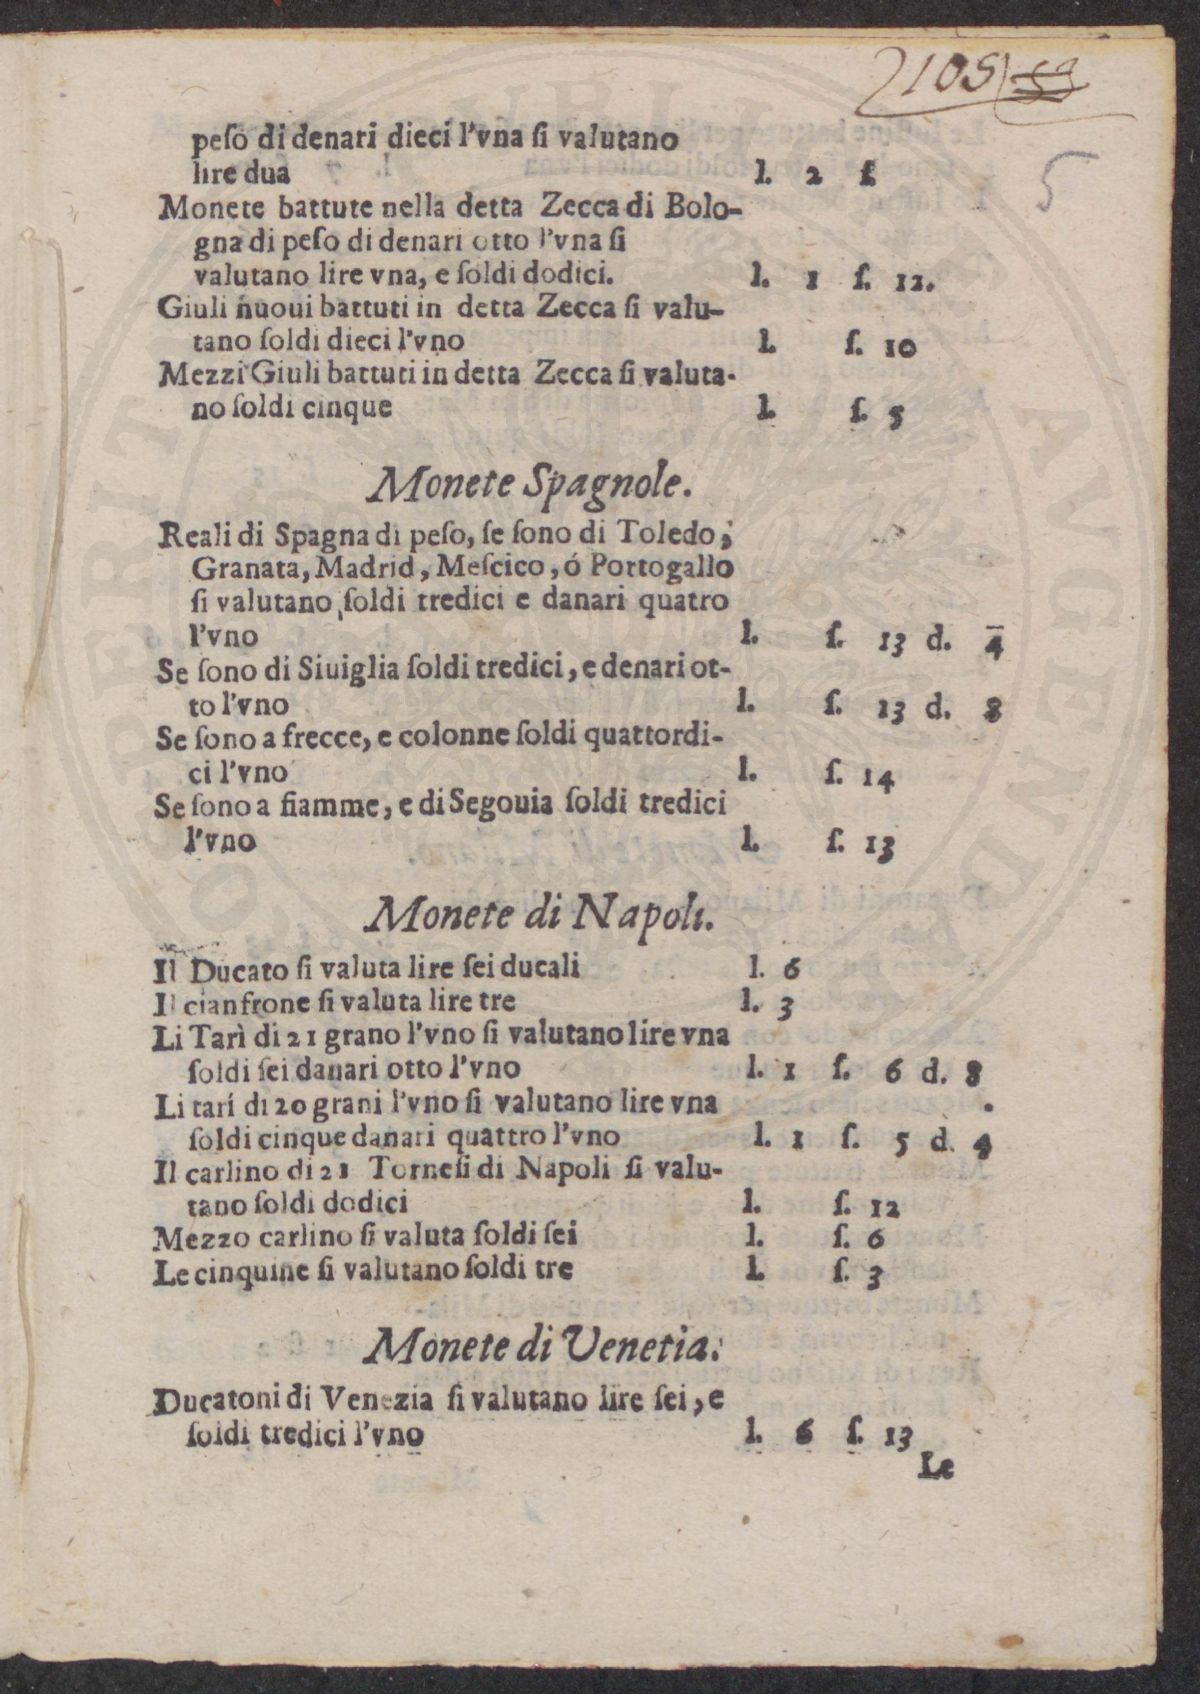 2105 59
5
peſo di denari dieci l'vna ſi valutano
lire dua l. 2 ſ.
Monete battute nella detta Zecca di Bolo-
gna di peſo di denari otto l'vna ſi
valutano lire vna, e ſoldi dodici. l. 1 ſ. 12.
Giuli nuoui battuti in detta Zecca ſi valu-
tano ſoldi dieci l'vno l. ſ. 10
Mezzi Giuli battuti in detta Zecca ſi valuta-
no ſoldi cinque l. ſ. 5
Monete Spagnole.
Reali di Spagna di peſo, ſe ſono di Toledo;
Granata, Madrid, Meſcico, ó Portogallo
ſi valutano ſoldi tredici e danari quatro
l'vno l. ſ. 13 d. 4
Se ſono di Siuiglia ſoldi tredici, e denari ot-
to l'vno l. ſ. 13 d. 8
Se ſono a frecce, e colonne ſoldi quattordi-
ci l'vno l. ſ. 14
Se ſono a fiamme, e di Segouia ſoldi tredici
l'vno l. ſ. 13
Monete di Napoli.
Il Ducato ſi valuta lire ſei ducali l. 6
Il cianfrone ſi valuta lire tre l. 3
Li Tarì di 21 grano l'vno ſi valutano lire vna
ſoldi ſei danari otto l'vno l. 1 ſ. 6 d. 8
Li tarí di 20 grani l'vno ſi valutano lire vna
ſoldi cinque danari quattro l'vno l. 1 ſ. 5 d. 4
Il carlino di 21 Torneſi di Napoli ſi valu-
tano ſoldi dodici l. ſ. 12
Mezzo carlino ſi valuta ſoldi ſei l. ſ. 6
Le cinquine ſi valutano ſoldi tre l. ſ. 3
Monete di Venetia.
Ducatoni di Venezia ſi valutano lire ſei, e
ſoldi tredici l'vno l. 6 ſ. 13
Le